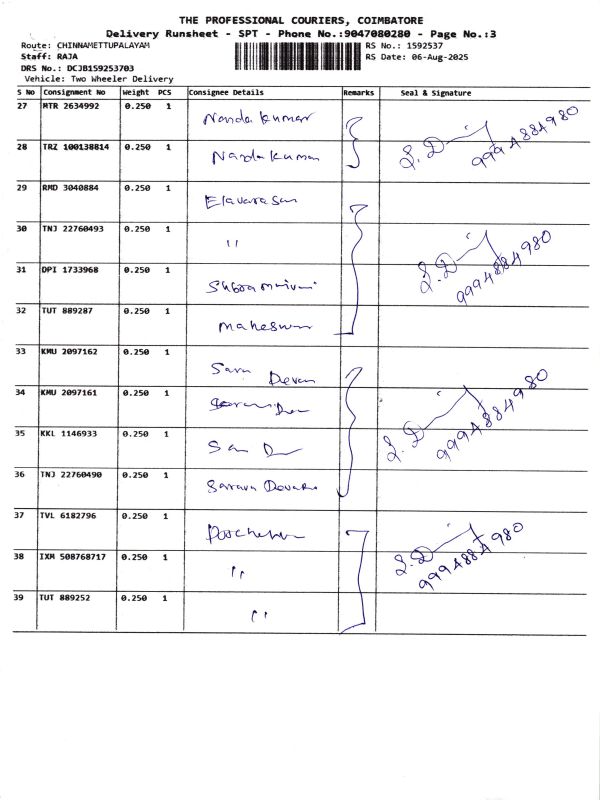 THE PROFESSIONAL COURIERS, COIMBATORE
Delivery Runsheet - SPT - Phone No.:9047080280 - Page No.:3
Route: CHINNAMETTUPALAYAM
RS No.: 1592537
Staff: RAJA
RS Date: 06-Aug-2025
DRS No.: DCJB159253703
Vehicle: Two Wheeler Delivery
S No Consignment No Weight PCS Consignee Details Remarks Seal & Signature
27 MTR 2634992 0.250 1 Nanda Kumar
9994884980
28 TRZ 100138814 0.250 1 Nanda Kumar
29 RMD 3040884 0.250 1 Elavarasan
30 TNJ 22760493 0.250 1 "
9994884980
31 DPI 1733968 0.250 1
32 TUT 889287 0.250 1 Maheswar
33 KMU 2097162 0.250 1 Devan
34 KMU 2097161 0.250 1
9994884980
35 KKL 1146933 0.250 1
36 TNJ 22760490 0.250 1
37 TVL 6182796 0.250 1
38 IXM 508768717 0.250 1 "
9994884980
39 TUT 889252 0.250 1 "